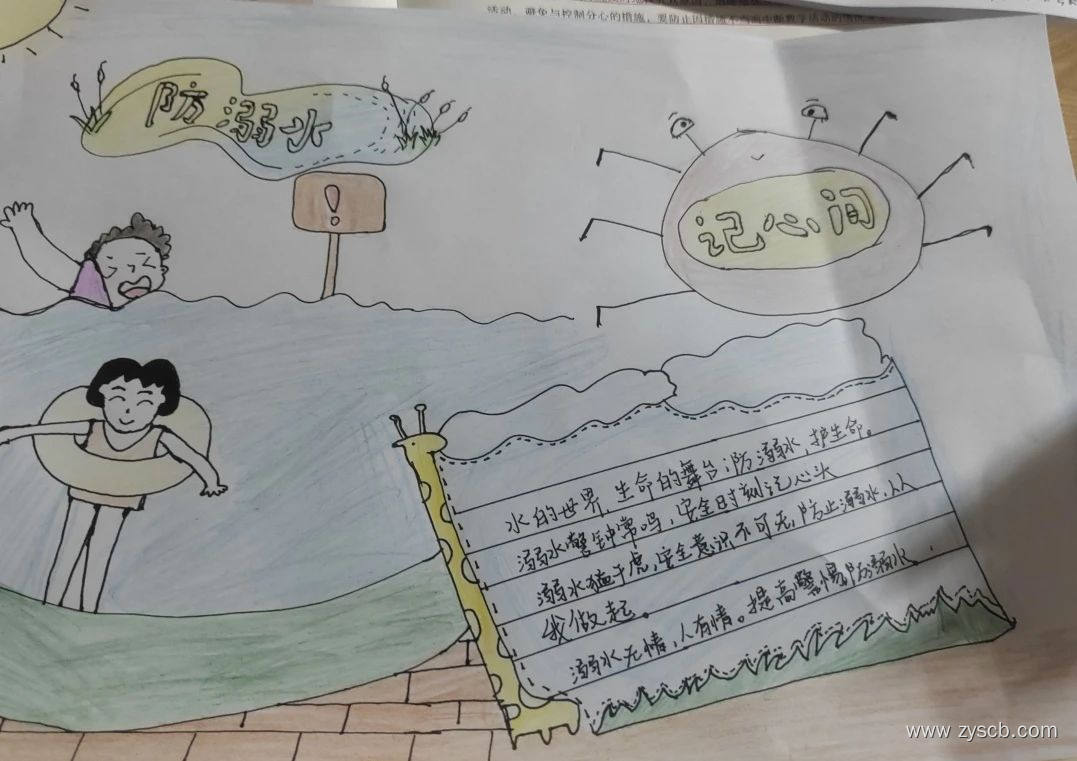 活动、避免与控制分心的措施,要防止因措施不当而中断教学活动的情况
防溺水
!
记心间
水的世界,生命的舞台;防溺水,护生命。
溺水警钟常鸣,安全时刻记心头
溺水猛于虎,安全意识不可无,防止溺水,从
我做起。
溺水无情,人有情。提高警惕防溺水.
www.zyscb.com